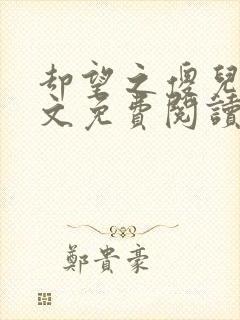 却望之傻兒
文免費閱讀
鄭貴豪